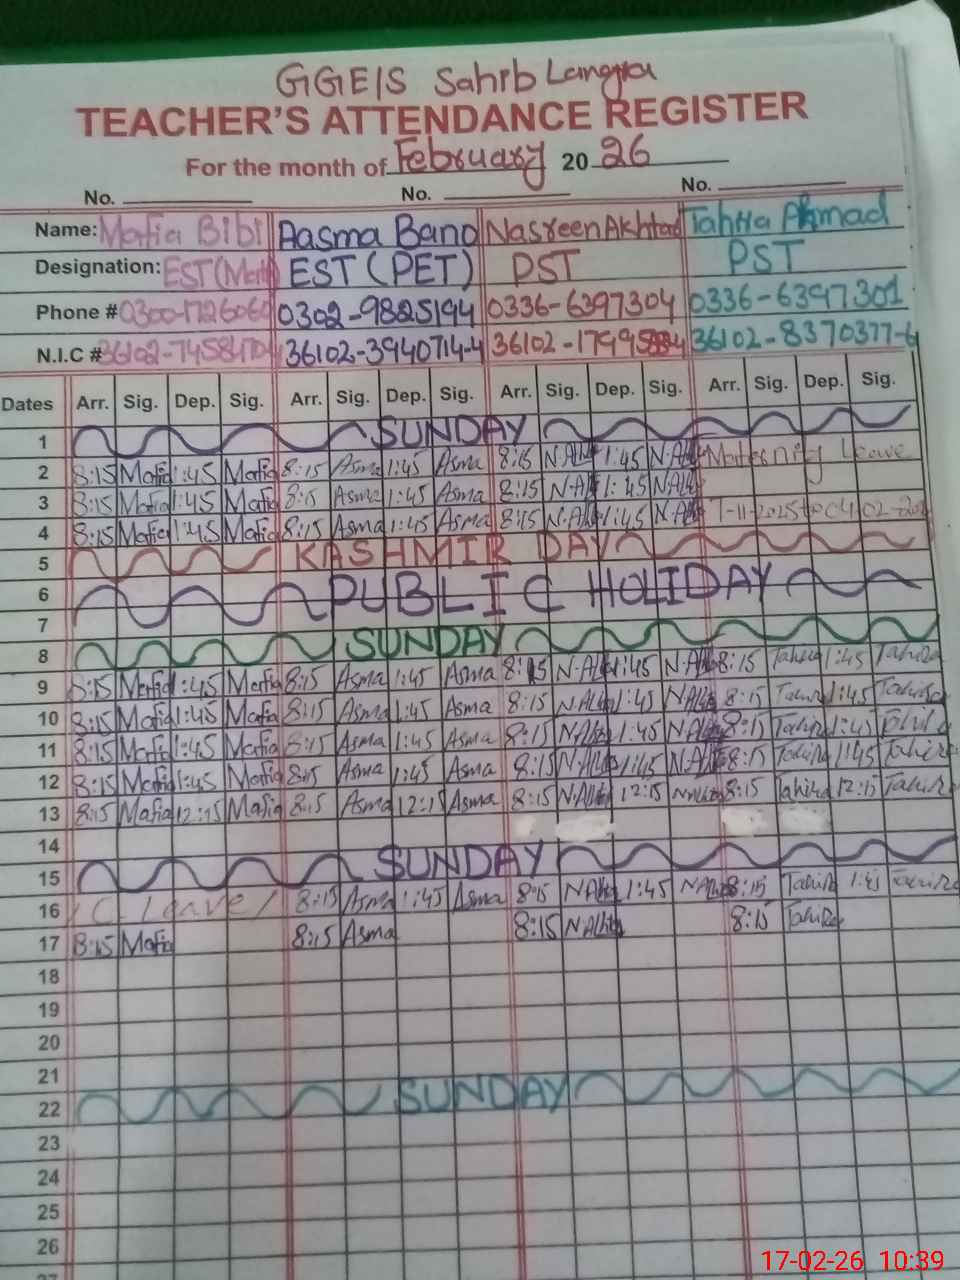 GGE/S Sahib Langra
TEACHER'S ATTENDANCE REGISTER
For the month of February 20 26
No. No. No.
Name: Mafia Bibi Aasma Bano Nasreen Akhtar Tahira Ahmad
Designation: EST (Math) EST (PET) PST PST
Phone # 0300-1726060 0302-9825194 0336-6397304 0336-6397301
N.I.C # 36102-7458170 36102-3940714-4 36102-1799 36102-8370377-6
Dates Arr. Sig. Dep. Sig. Arr. Sig. Dep. Sig. Arr. Sig. Dep. Sig. Arr. Sig. Dep. Sig.
1 SUNDAY
2 8:15 Mafia 1:45 Mafia 8:15 Asma 1:45 Asma 8:15 N.Akh 1:45 N.Akh Maternity Leave
3 8:15 Mafia 1:45 Mafia 8:15 Asma 1:45 Asma 8:15 N.Akh 1:45 N.Akh
4 8:15 Mafia 1:45 Mafia 8:15 Asma 1:45 Asma 8:15 N.Akh 1:45 N.Akh 7-11-2025 to 04-02-202
5 KASHMIR DAY
6 PUBLIC HOLIDAY
7
8 SUNDAY
9 8:15 Mafia 1:45 Mafia 8:15 Asma 1:45 Asma 8:15 N.Akh 1:45 N.Akh 8:15 Tahira 1:45 Tahira
10 8:15 Mafia 1:45 Mafia 8:15 Asma 1:45 Asma 8:15 N.Akh 1:45 N.Akh 8:15 Tahira 1:45 Tahira
11 8:15 Mafia 1:45 Mafia 8:15 Asma 1:45 Asma 8:15 N.Akh 1:45 N.Akh 8:15 Tahira 1:45 Tahira
12 8:15 Mafia 1:45 Mafia 8:15 Asma 1:45 Asma 8:15 N.Akh 1:45 N.Akh 8:15 Tahira 1:45 Tahira
13 8:15 Mafia 12:15 Mafia 8:15 Asma 12:15 Asma 8:15 N.Akh 12:15 N.Akh 8:15 Tahira 12:15 Tahira
14
15 SUNDAY
16 C. Leave 8:15 Asma 1:45 Asma 8:15 N.Akh 1:45 N.Akh 8:15 Tahira 1:45 Tahira
17 8:15 Mafia 8:15 Asma 8:15 N.Akh 8:15 Tahira
18
19
20
21
22 SUNDAY
23
24
25
26
17-02-26 10:39